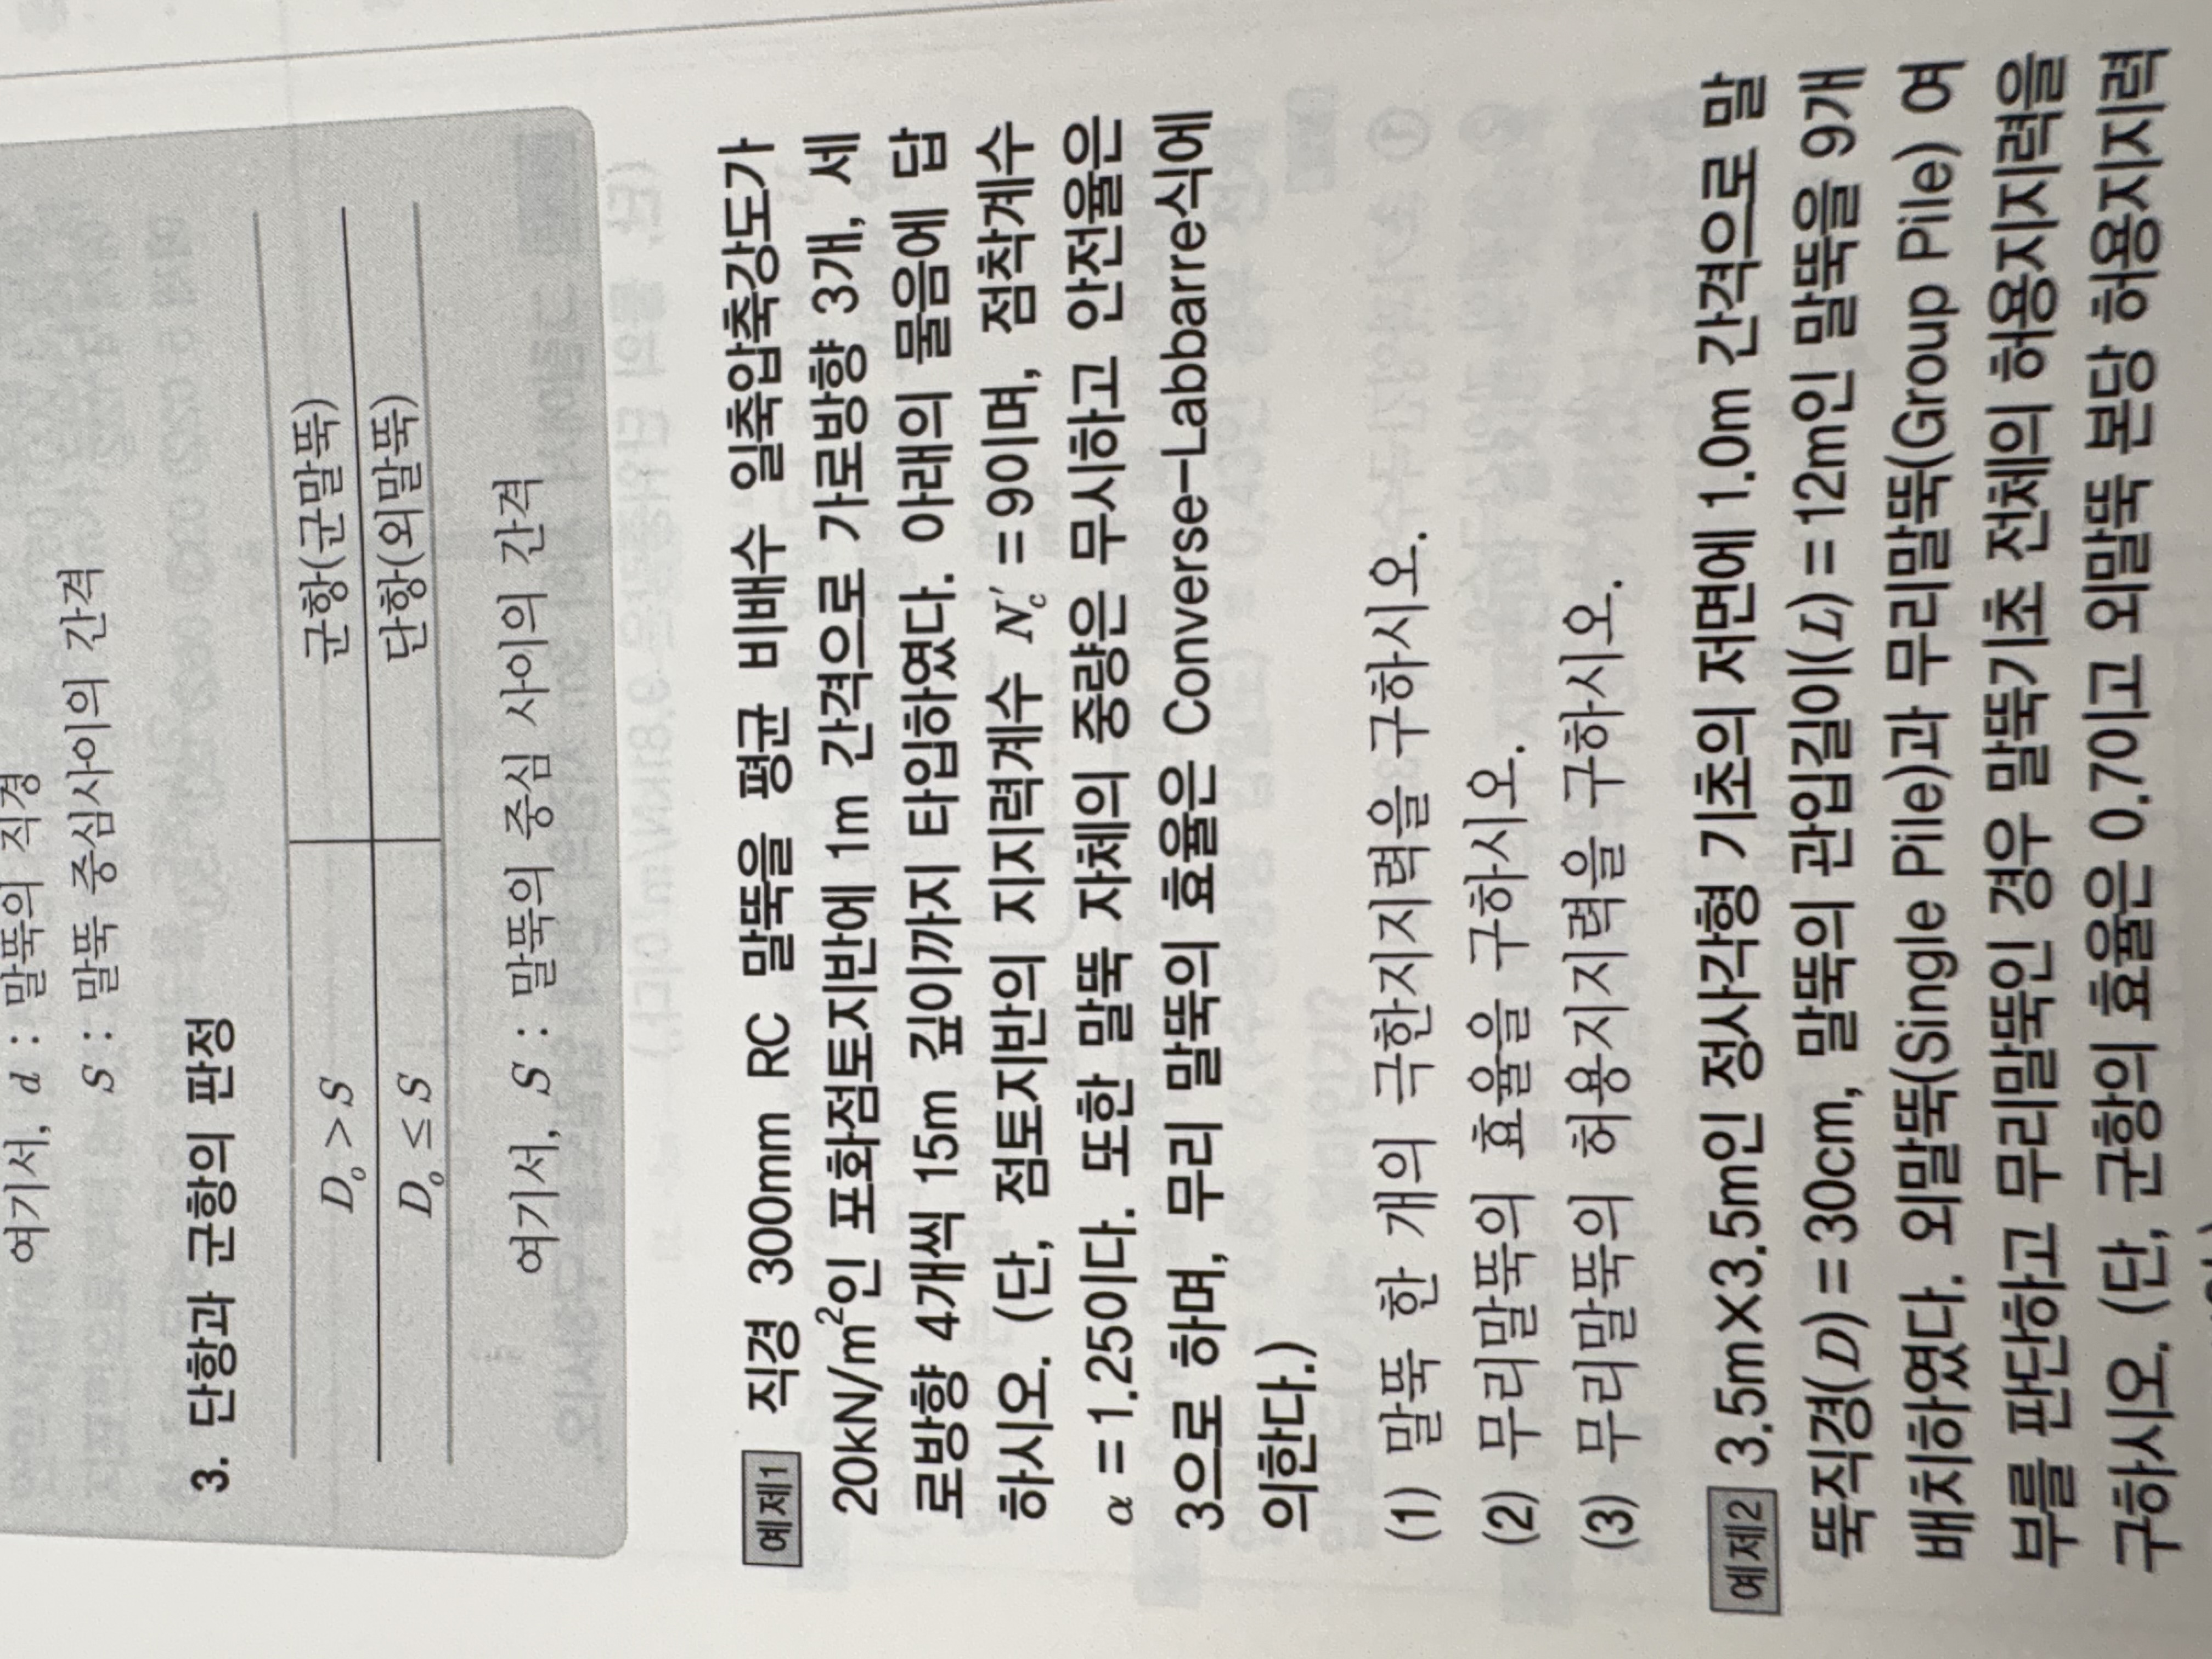 여기서, d : 말뚝의 직경
S : 말뚝 중심사이의 간격
3. 단항과 군항의 판정
D₀ > S 군항(군말뚝)
D₀ ≤ S 단항(외말뚝)
여기서, S : 말뚝의 중심 사이의 간격
예제1 직경 300mm RC 말뚝을 평균 비배수 일축압축강도가
20kN/m²인 포화점토지반에 1m 간격으로 가로방향 3개, 세
로방향 4개씩 15m 깊이까지 타입하였다. 아래의 물음에 답
하시오. (단, 점토지반의 지지력계수 N_c′ = 9이며, 점착계수
α = 1.25이다. 또한 말뚝 자체의 중량은 무시하고 안전율은
3으로 하며, 무리 말뚝의 효율은 Converse-Labbarre식에
의한다.)
(1) 말뚝 한 개의 극한지지력을 구하시오.
(2) 무리말뚝의 효율을 구하시오.
(3) 무리말뚝의 허용지지력을 구하시오.
예제2 3.5m×3.5m인 정사각형 기초의 저면에 1.0m 간격으로 말
뚝직경(D) = 30cm, 말뚝의 관입길이(L) = 12m인 말뚝을 9개
배치하였다. 외말뚝(Single Pile)과 무리말뚝(Group Pile) 여
부를 판단하고 무리말뚝인 경우 말뚝기초 전체의 허용지지력을
구하시오. (단, 군항의 효율은 0.7이고 외말뚝 본당 허용지지력